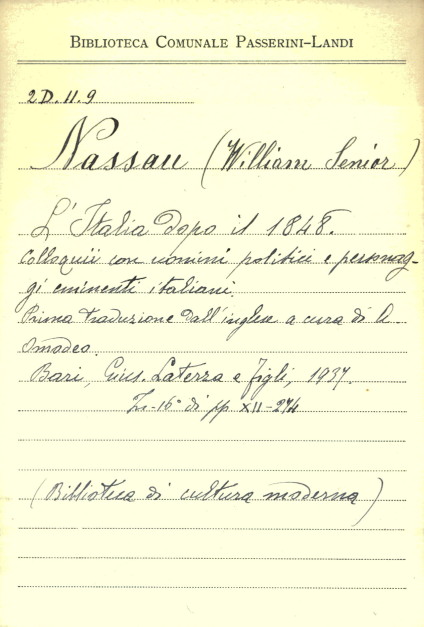 Biblioteca Comunale Passerini-Landi
2D.11.9
Nassau (William Senior)
L'Italia dopo il 1848.
Colloquii con uomini politici e personag-
gi eminenti italiani.
Prima traduzione dall'inglese a cura di A.
Omodeo.
Bari, Gius. Laterza e Figli, 1937.
In-16° di pp XII-274
(Biblioteca di cultura moderna)